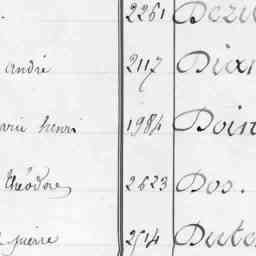 2261 Dezi
andré 2117 Dian
arie henri 1984 Doin
théodore 2623 Dos.
pierre 2514 Duto